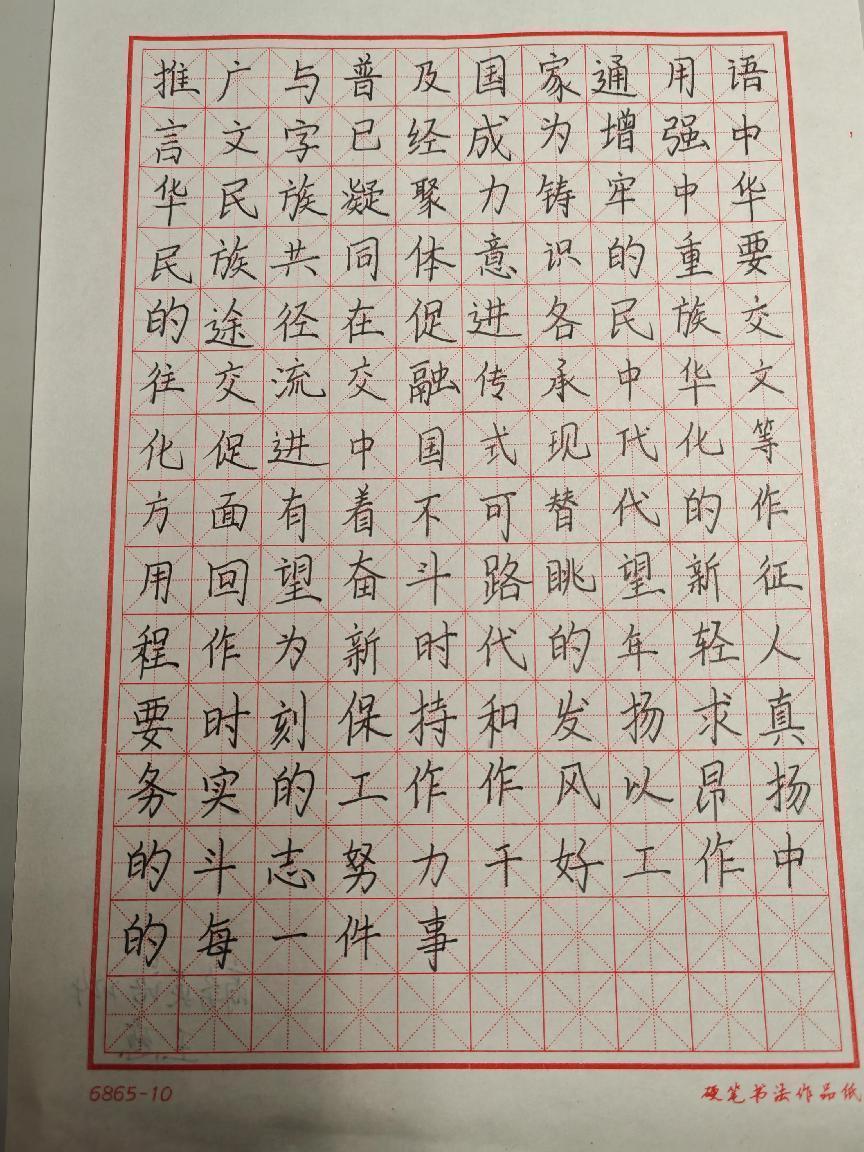 推广与普及国家通用语
言文字已经成为增强中
华民族凝聚力铸牢中华
民族共同体意识的重要
的途径在促进各民族交
往交流交融传承中华文
化促进中国式现代化等
方面有着不可替代的作
用回望奋斗路眺望新征
程作为新时代的年轻人
要时刻保持和发扬求真
务实的工作作风以昂扬
的斗志努力干好工作中
的每一件事
6865-10
硬笔书法作品纸